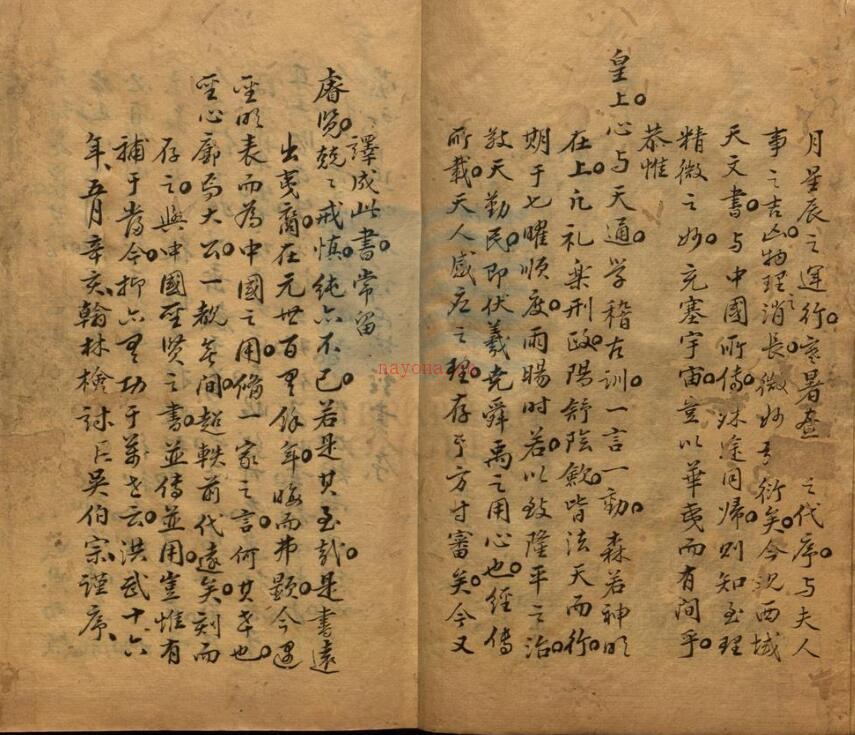 月星辰之運行。寒暑晝 之代序。与夫人
事之吉凶。物理之消長。微妙弘衍矣。今觀西域
天文書。与中國所傳殊途同歸。則知至理
精微之妙。充塞宇宙。豈以華夷而有间乎。
恭惟
皇上。心与天通。学稽古訓。一言一動。森若神明
在上。凢礼楽刑政。陽舒陰歛。皆法天而行。
期于七曜順度。雨暘時若。以致隆平之治。
敬天勤民。即伏羲尭舜禹之用心也。经傳
所載。天人感应之理。存乎方寸審矣。今又
譯成此書。常留
睿覽。兢〻戒慎。純亦不已。若是其至哉。是書遠
出夷裔。在元世百里馀年。晦而弗顯。今遇
聖明表而為中國之用。俻一家之言。何其幸也。
聖心廓焉大公。一視無间。超軼前代遠矣。刻而
存之。與中國聖贤之書。並傳並用。豈惟有
補于當今。抑亦有功于萬世云。洪武十六
年、五月辛亥、翰林檢討臣吴伯宗謹序、
nayona.cn